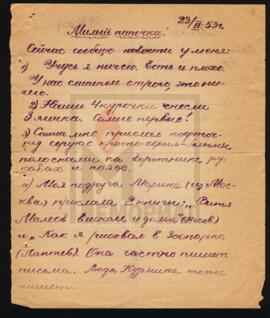 23/II-53г.
Милый папочка!
Сейчас сообщу новости у меня:
1) Учусь я ничего. Есть и плохо.
У нас слишком строго, это ни-
чего.
2) Наши 4 курочки снесли
3 яичка. Самые первые!
3) Саша мне прислал
серую с красно-
полосками на воротнике, ру-
кавах и поясе.
4) Моя подруга Марина (из Мос-
квы) прислала 2 книги: „Витя
Малеев в школе и дома" (Носов)
и „Как я рисовал в Зоопарке"
(Лаптев). Она часто пишет
письма. Люда Кузьмина тоже
пишет.